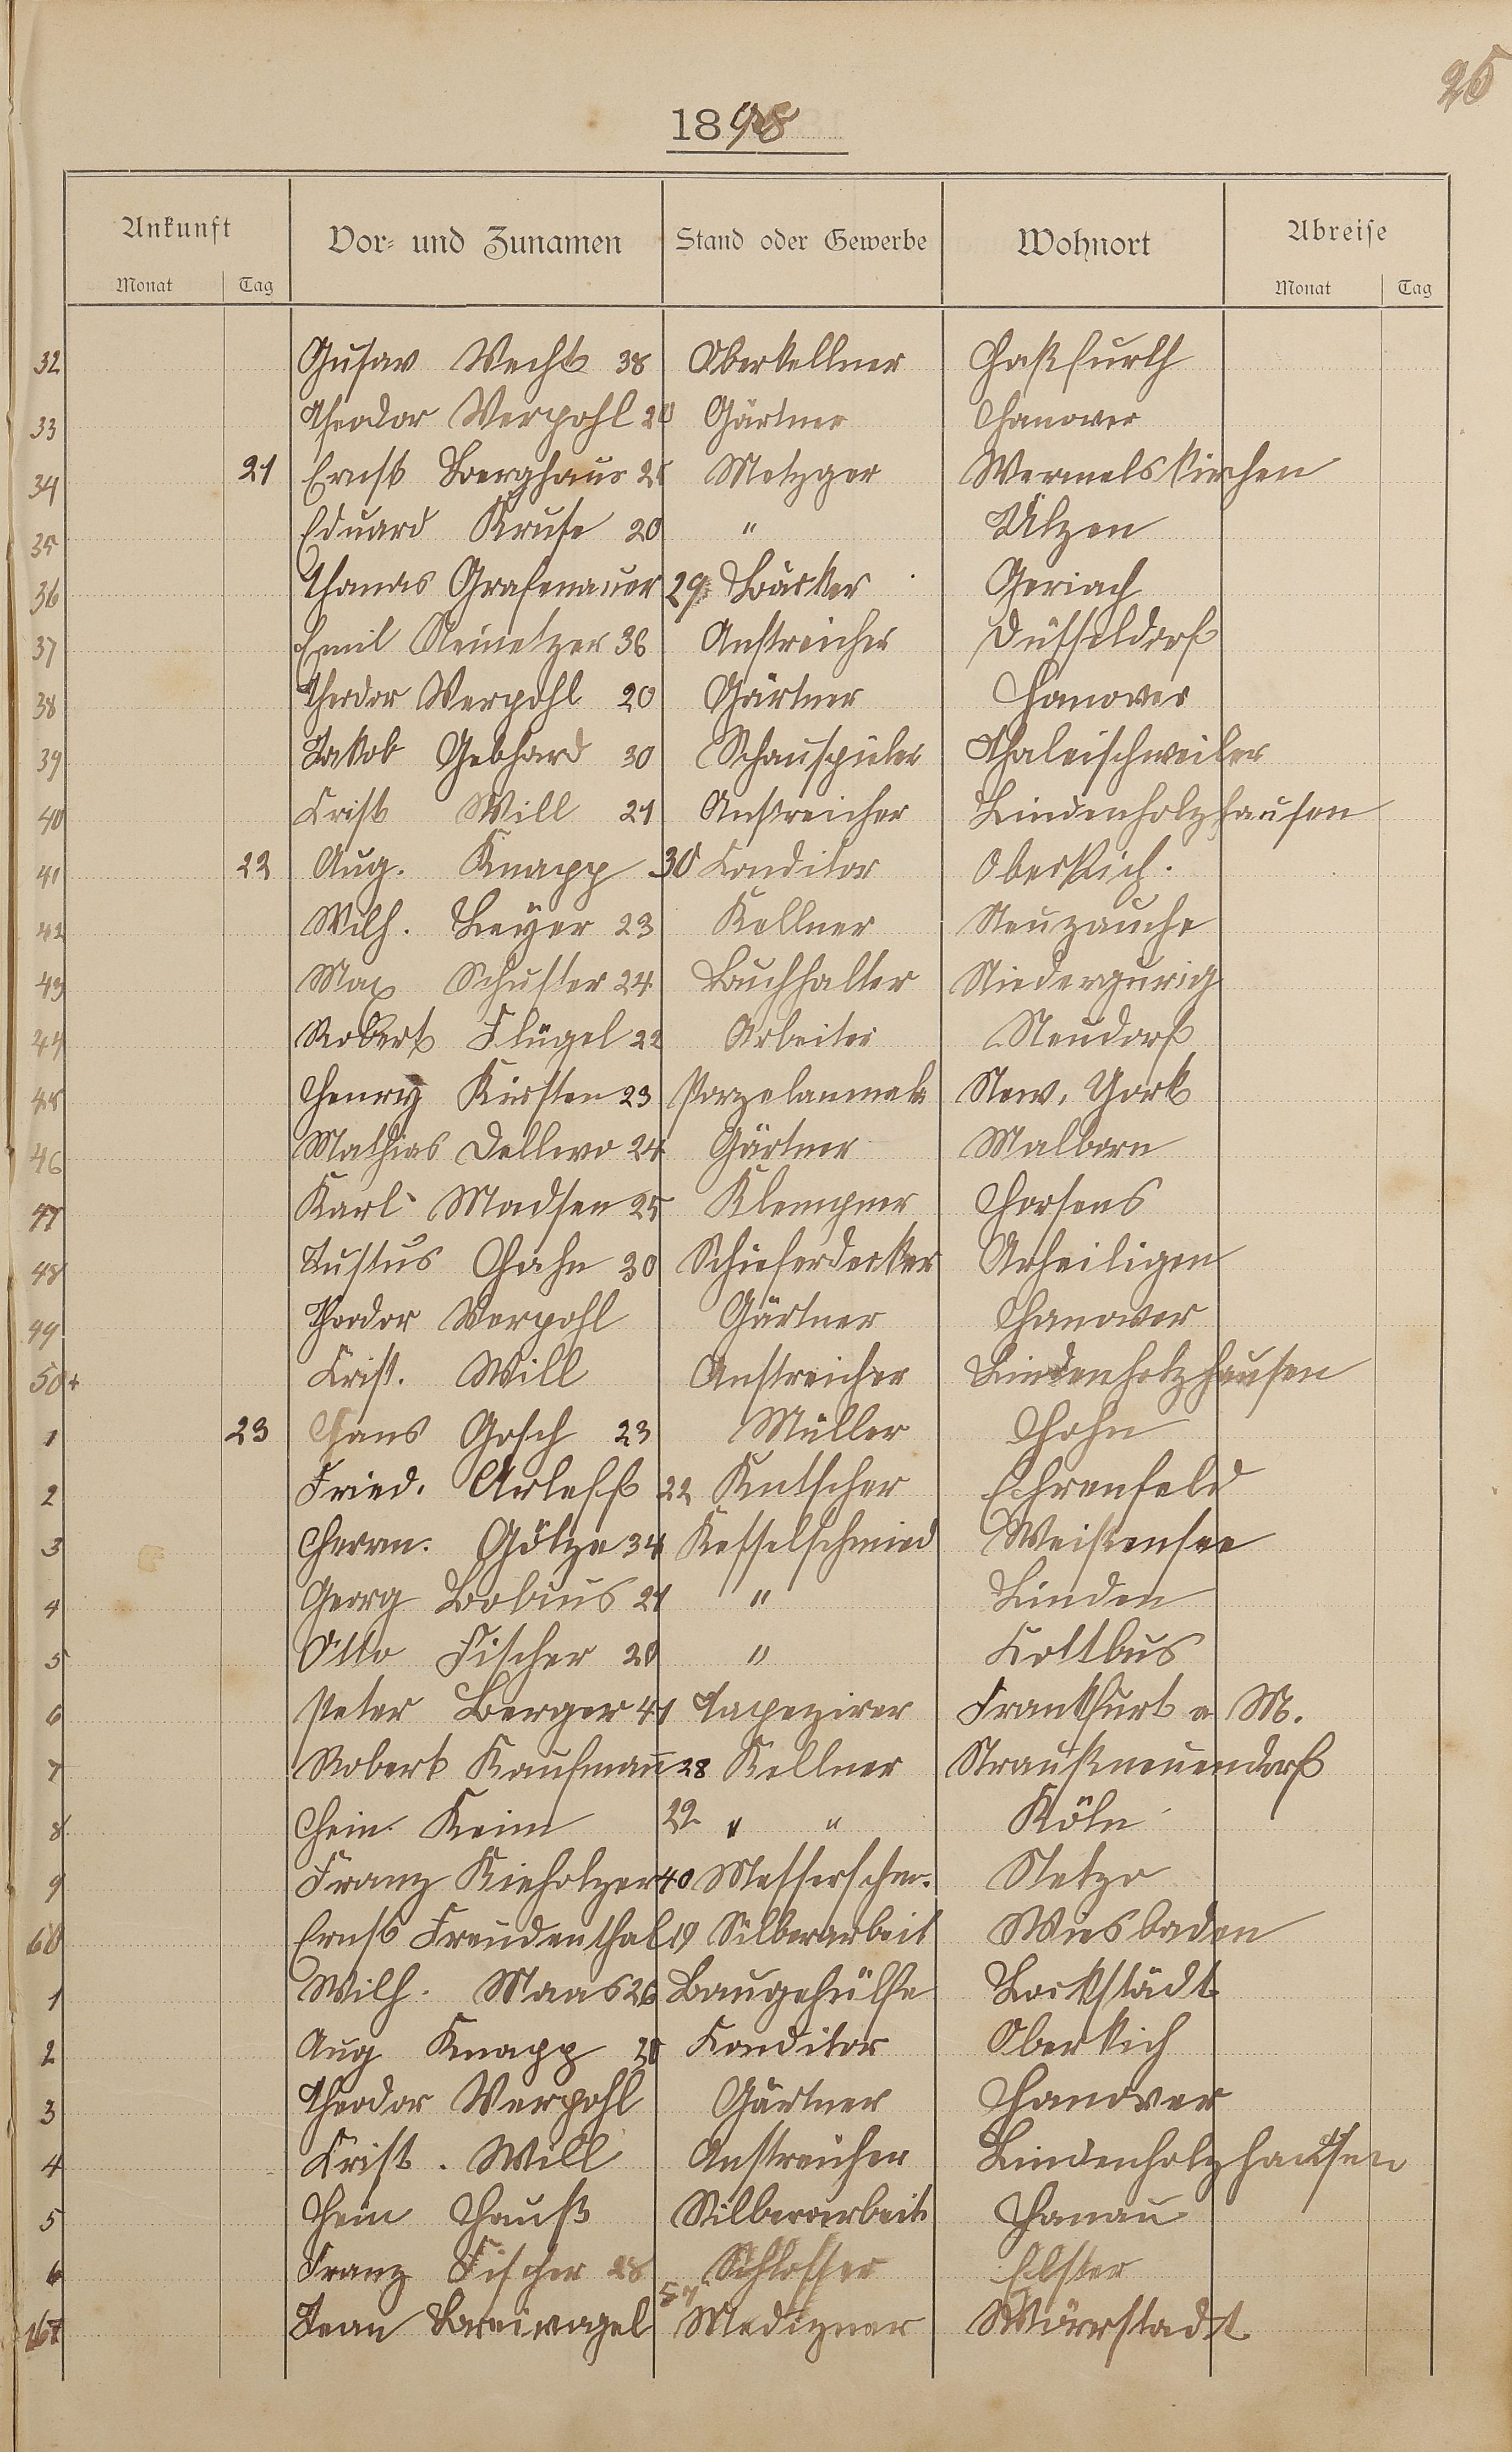 25
1898
Ankunft Vor- und Zunamen Stand oder Gewerbe Wohnort Abreise
Monat Tag Monat Tag
32 Gusav Wecht 38 Oberkellner Haßfurth
33 Theodor Werpohl 20 Gärtner Hanover
34 21 Ernst Berghaus 25 Metzger Wermelskirchen
35 Eduard Kruse 20 " Ülzen
36 Thomas Grafenauer 29 Bäcker Geriach
37 Emil Steinetzer 36 Anstreicher Düsseldorf
38 Theodor Werpohl 20 Gärtner Hanover
39 Jakob Gebhard 30 Schauspieler Thaleischweiler
40 Crist Will 21 Anstreicher Lindenholzhausen
41 22 Aug. Knapp 30 Conditor Oberkich.
42 Wilh. Leyer 23 Kellner Neuzauche
43 Max Schuster 24 Buchhalter Niedergurig
44 Robert Flügel 22 Arbeiter Neudorf
45 Henry Kirsten 23 Porzelanmale New. York
46 Mathias Dellwo 24 Gärtner Malborn
47 Karl Madsen 25 Klempner Horsens
48 Justus Hahn 30 Schieferdecker Arheiligen
49 Theodor Werpohl Gärtner Hanover
50+ Crist. Will Anstreicher Lindenholzhausen
1 23 Hans Gosch 23 Müller Hohn
2 Fried. Arleff 22 Kutscher Ehrenfeld
3 Herm. Götze 34 Kesselschmied Weißensee
4 Georg Bobius 21 " Linden
5 Otto Fischer 20 " Cottbus
6 Peter Berger 41 Tapezirer Frankfurt a M.
7 Robert Kaufmann 28 Kellner Straußneuendorf
8 Hein Keim 22 " " Köln
9 Franz Kieholzer 40 Messerschm. Netzo
60 Ernst Freudenthal 19 Silberarbeit Wiesbaden
1 Wilh. Maas 26 Baugehülfe Bockstädt
2 Aug Knapp 20 Conditor Oberkich
3 Theodor Werpohl Gärtner Hanover
4 Crist. Will Anstreicher Lindenholzhausen
5 Hein Hauß Silberarbeit Hanau
6 Franz Fischer 28 Schlosser Elster
167 Jean Breivogel 57 Medizner Wörrstadt